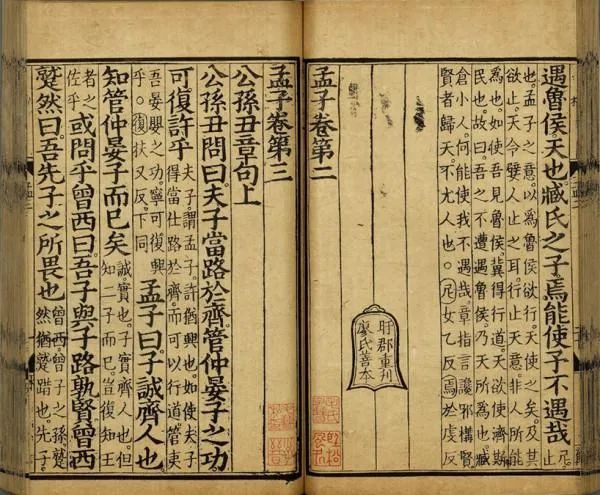 遇魯侯天也臧氏之子焉能使子不遇哉尼
也孟子之意以為魯侯欲行天使之矣及其
欲止天令嬖人止之耳行止天意非人所能
為也如使吾見魯侯冀得行道天欲濟斯
民也故曰吾之不遭遇魯侯乃天所為也臧
倉小人何能使我不遇哉章指言讒邪搆賢
賢者歸天不尤人也尼女乙反焉於虔反
孟子卷第二
盱郡重刊
廖氏善本
孟子卷第三
公孫丑章句上
公孫丑問曰夫子當路於齊管仲晏子之功
可復許乎夫子謂孟子許猶興也如使夫子得當仕路於齊而可以行道管夷
吾晏嬰之功寧可復興乎復扶又反下同孟子曰子誠齊人也
知管仲晏子而已矣誠實也子實齊人也但知二子而已豈復知王
者之佐乎或問乎曾西曰吾子與子路孰賢曾西
蹵然曰吾先子之所畏也曾西曾子之孫蹵然猶蹵踖也先子